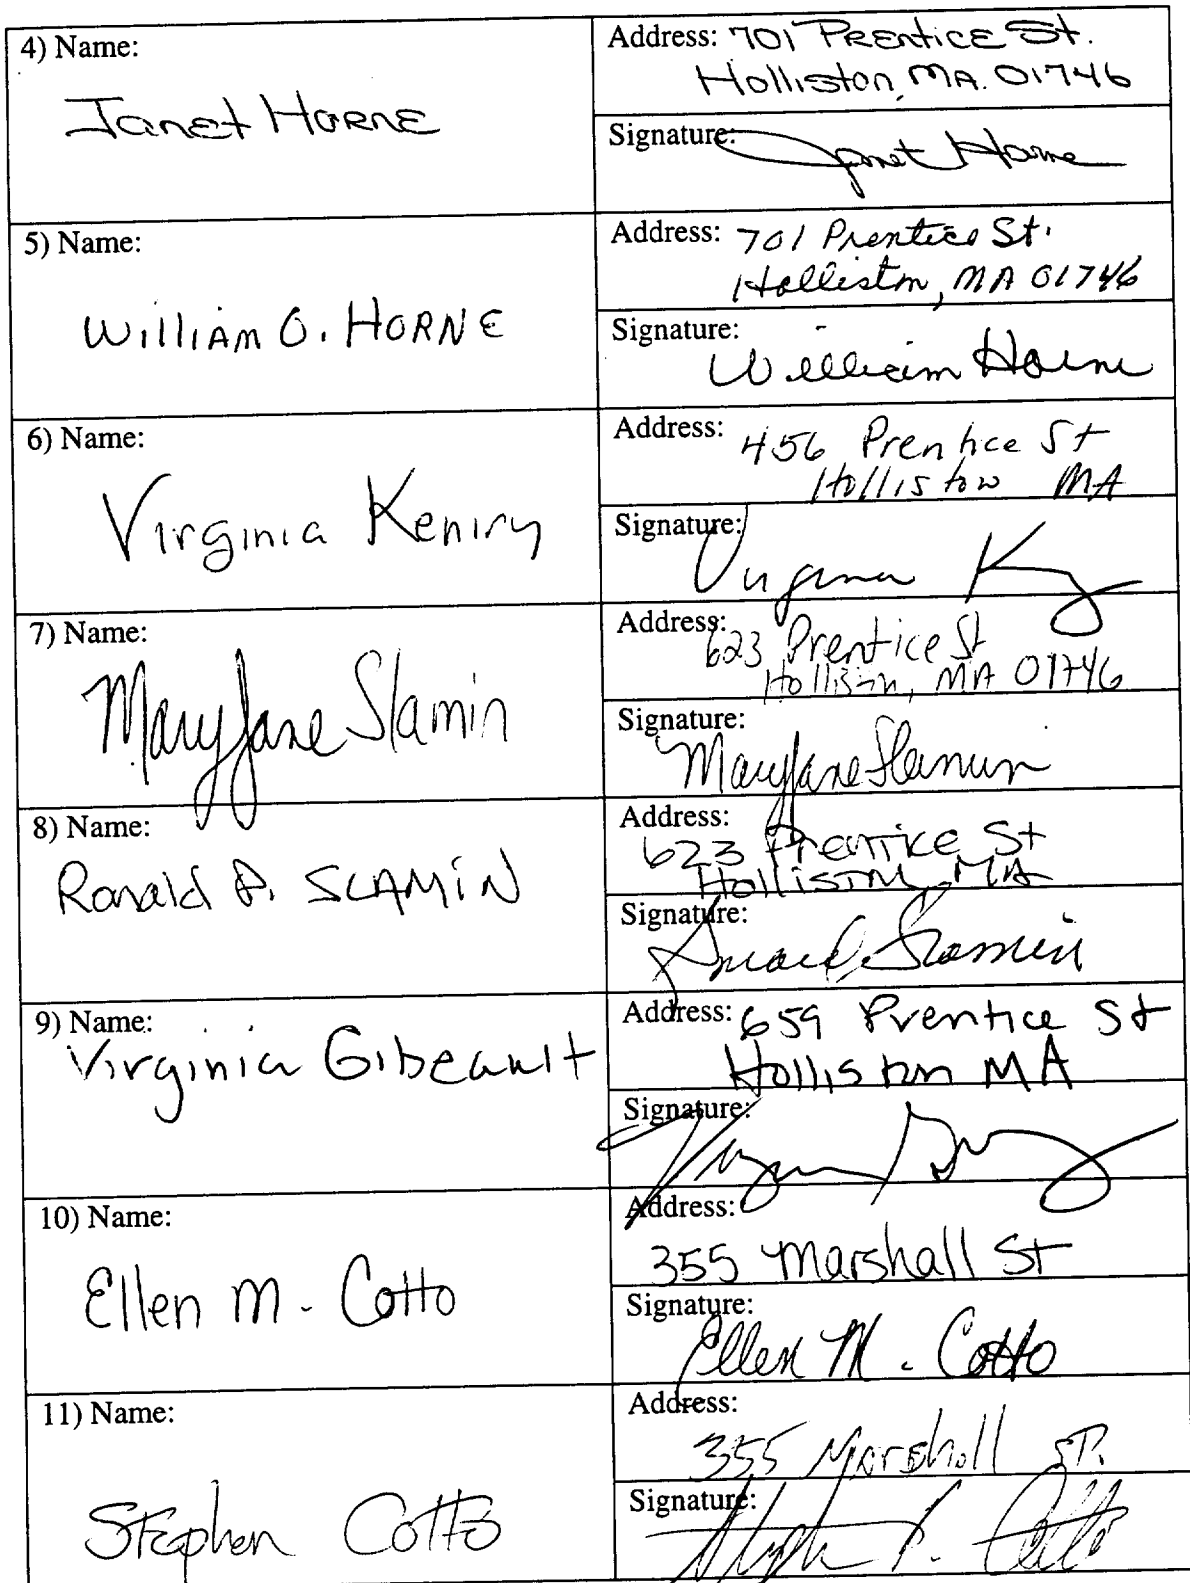 4) Name:
Janet Horne
Address: 701 Prentice St.
Holliston, MA. 01746
Signature: Janet Horne
5) Name:
William O. Horne
Address: 701 Prentice St.
Holliston, MA 01746
Signature:
William Horne
6) Name:
Virginia Keniry
Address: 456 Prentice St
Holliston MA
Signature:
Virginia
7) Name:
MaryJane Slamin
Address: 623 Prentice St
Holliston, MA 01746
Signature:
MaryJane Slamin
8) Name:
Ronald P. Slamin
Address:
623 Prentice St
Holliston, MA
Signature:
Slamin
9) Name:
Virginia Gibeault
Address: 659 Prentice St
Holliston MA
Signature:
10) Name:
Ellen M. Cotto
Address:
355 Marshall St
Signature:
Ellen M. Cotto
11) Name:
Stephen Cotto
Address:
355 Marshall St.
Signature: